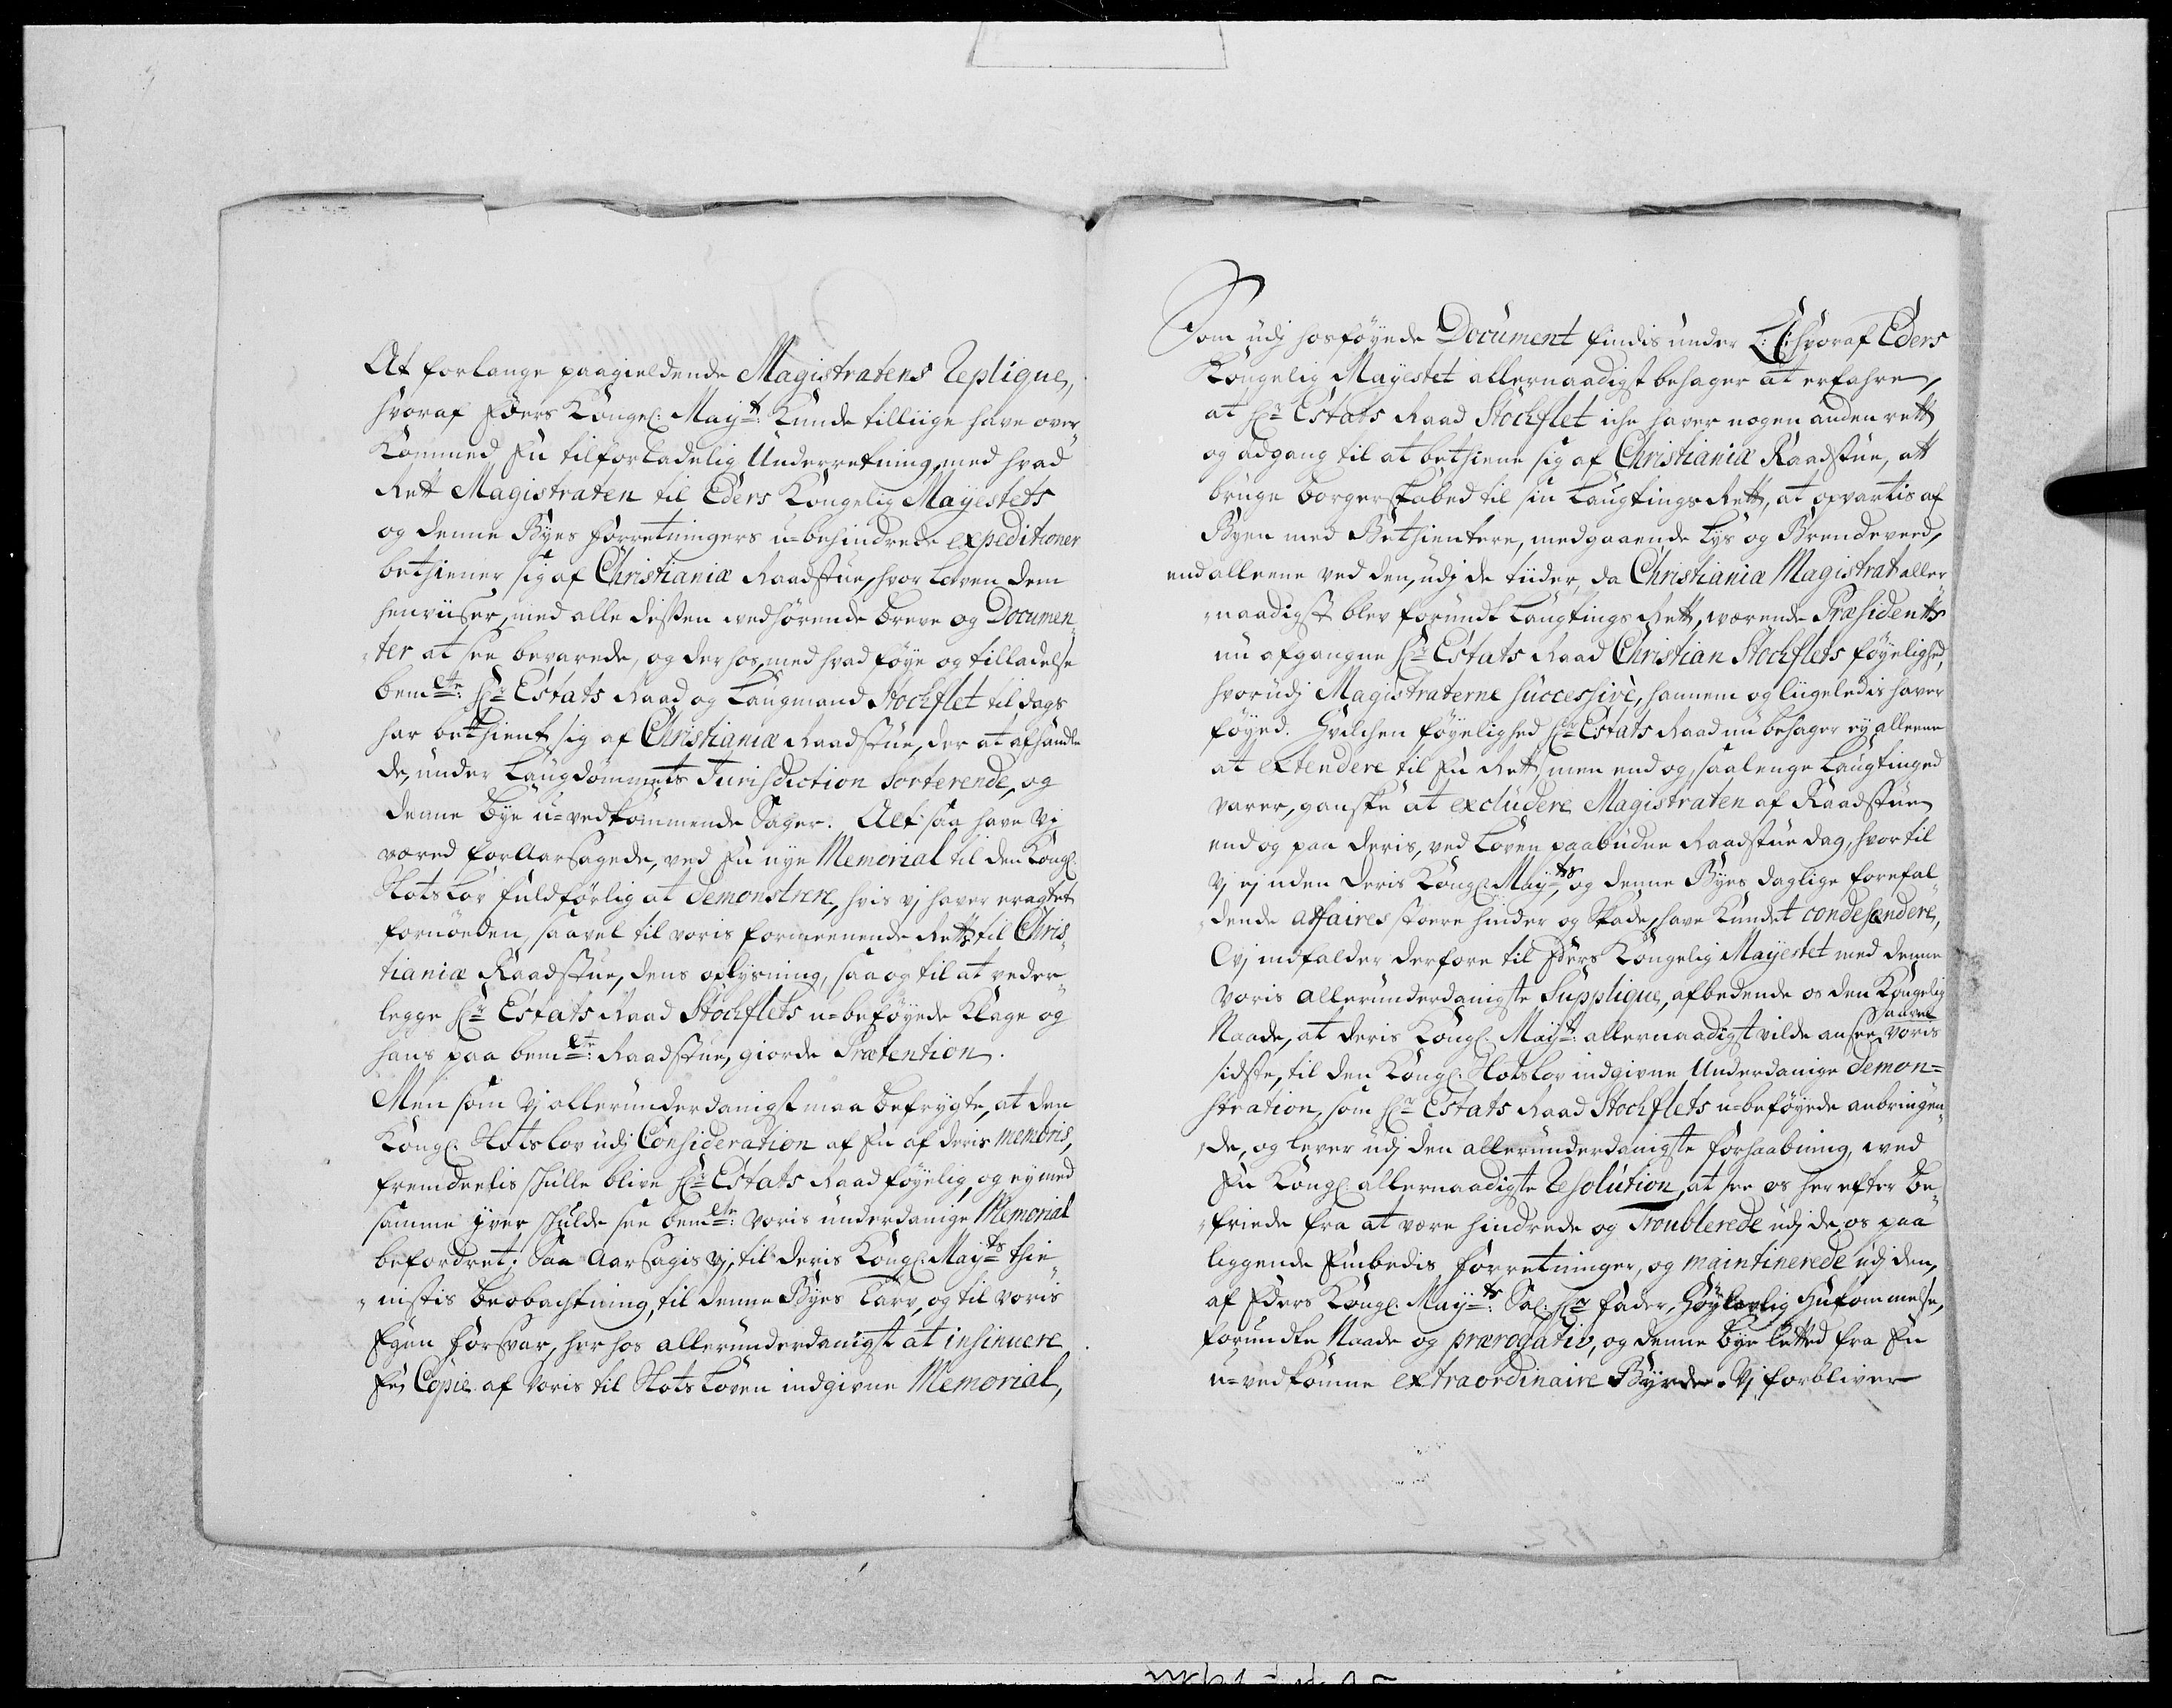 At forlange paagieldende Magistratens Replique,
hvoraf Eders Kongel: Mayts: Kunde tilliige have over
Kommed En tilforladelig Underretning, med hvad
Rett Magistraten til Eders Kongelig Mayestets
og denne Byes forretningers u-behindrede expeditioner
bethiener sig af Christianiæ Raadstue, hvor Loven dem
henviiser, med alle dessen vedhørende breve og Documen¬
ter at see bevarede, og derhos, med hvad føye og tilladelse
bemte: Hr Estats Raad og Laugmand Stochflet til dags
har bethient sig af Christianiæ Raadstue, der at afhandle
de, under Laugdømmets Jurisdiction Sorterende, og
denne Bye u-vedkommende Sager. Alt saa have Vj
været foraarsagede, ved En nye Memorial til den Kongl:
Slots Lov fuldførlig at demonstrere, hvis vj haver eragtet
fornøeden, saavel til voris formeenende Rett til Chris¬
tianiæ Raadstue, dens oplysning, saa og til at veder¬
legge Hr Estats Raad Stochflets u-beføyede Klage og
hans paa bemte: Raadstue, giorde Prætention.
Men som Vj allerunderdanigst maa befrygte, at den
Kongl: Slotslov udj Consideration af En af deris membris,
fremdeelis skulle blive Hr Estats Raad føyelig, og ey med
samme iver skulde see bemte: voris underdanige Memorial
befordret; Saa Aarsagis vj, til deris Kongl: Mayts thie¬
nistis beobachtning, til denne Byes Tarv, og til voris
Egen forsvar, her hos allerunderdanigst at insinuere
En Copie af Voris til Slots Loven indgivne Memorial,
Som udj hosføyede Document findis under L: C: hvoraf Eders
Kongelig Mayestet allernaadigst behager at erfahre,
at Hr Estats Raad Stochflet iche haver nogen anden rett
og adgang til at bethiene sig af Christianiæ Raadstue, att
bruge borgerskabed til sin Laugtings Rett, at opvartis af
Byen med Bethientere, medgaaende Lys og Brendeveed,
end alleene ved den, udj de tiider, da Christianiæ Magistrat aller
naadigst blev forundt Laugtings Rett, værende Præsidents
nu afgangne Hr Estats Raad Christian Stochflets føyelighed,
hvorudj Magistraterne successivè, hannem og liigeledis haver
føyed. Hvilchen føyelighed Hr Estats Raad nu behager ey alleene
at extendere til En Rett, men end og, saalenge Laugtinged
varer, ganske at excludere Magistraten af Raadstuen
end og paa deris, ved Loven paabudne Raadstue dag, hvortil
vj ej uden deris Kongl: Mayts, og denne Byes daglige forefal¬
dende affaires støere hinder og Skade, have Kundet condescendere,
Vj indfalder derfore til Eders Kongelig Mayestet med denne
Voris allerunderdanigste Supplique, afbedende os den Kongelig
Naade, at deris Kongl: Mayt: allernaadigst vilde ansee saavel voris
sidste, til den Kongl: Slotslov indgivne Underdanige demon=
stration, som Hr Estats Raad Stochflets u-beføyede anbringen¬
de, og lever udj den allerunderdanigste forhaabning, ved
En Kongl: allernaadigste Resolution, at see os her efter be¬
friede fra at være hindrede og Troublerede udj de os paa
liggende Embedis forretninger, og maintinerede udj den,
af Eders Kongl: Mayts: Sal: Hr fader, Høylovlig Hukommelse,
forundte Naade og prærogativ, og denne bye letted fra En
u-vedkomne extraordinaire Byrde. Vj forbliver